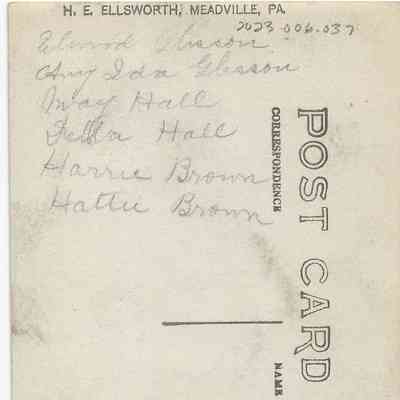 H. E. ELLSWORTH, MEADVILLE, PA.
2023.006.037
Elwood Gleason
Amy Ida Gleason
May Hall
Della Hall
Harrie Brown
Hattie Brown
POST CARD
CORRESPONDENCE
NAME